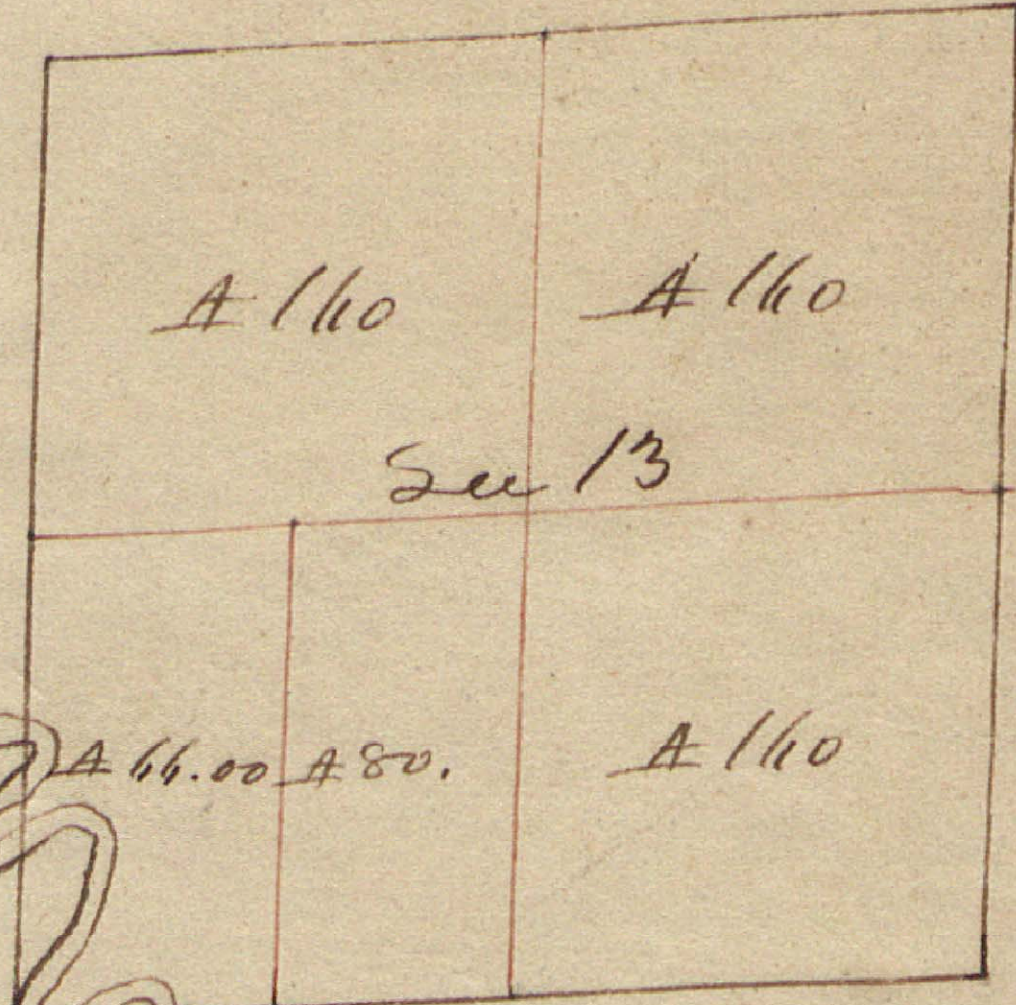 A 160
A 160
Sec 13
A 66.00
A 80.
A 160